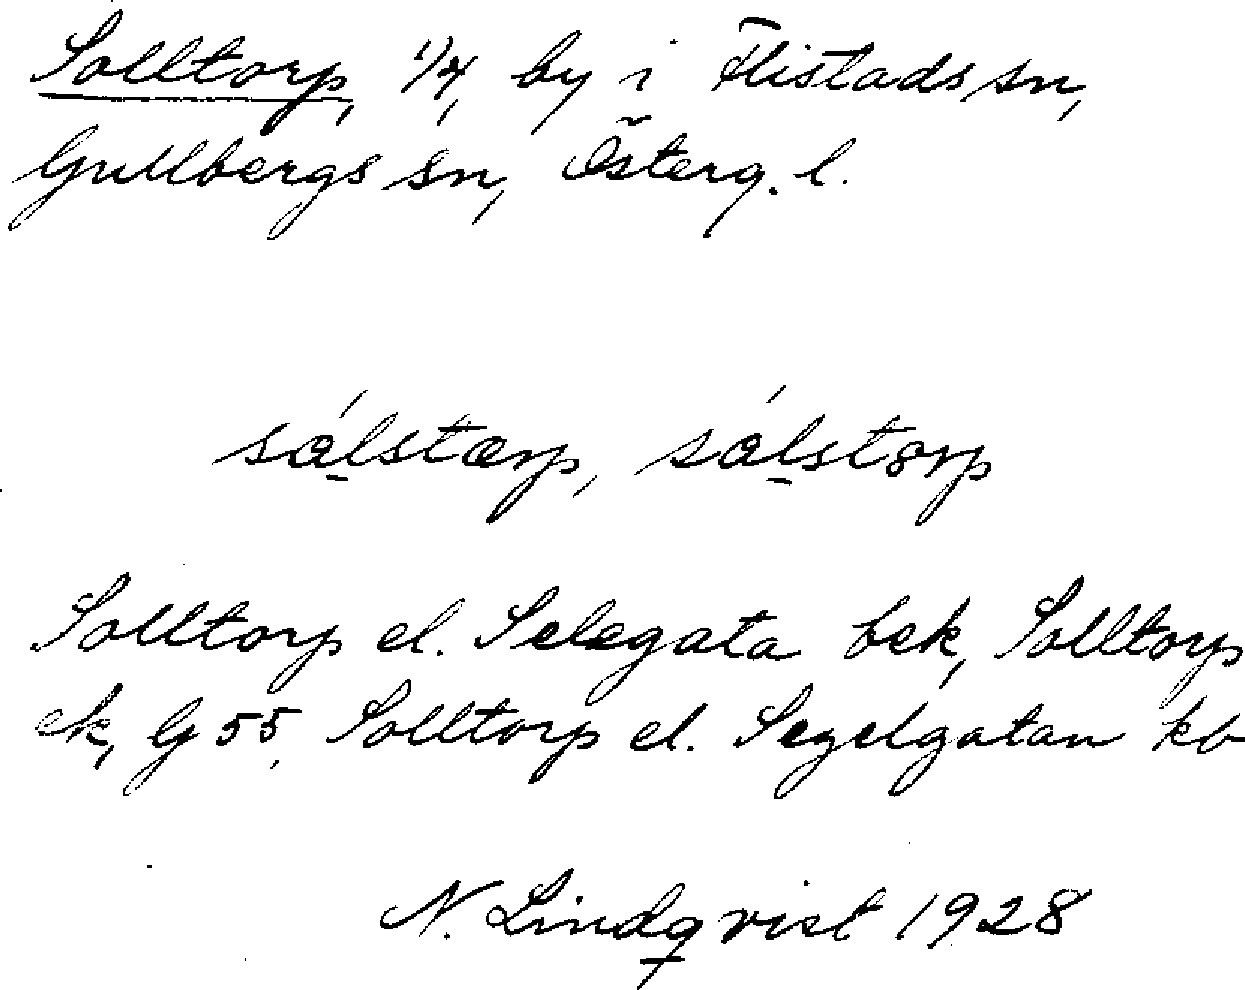 Solltorp, 1/4, by i Flistads sn,
Gullbergs sn, Österg. l.
sålstærp, sålstorp
Solltorp el. Selegata bek, Solltorp
ek, G 55, Solltorp el. Segelgatan kb
N. Lindqvist 1928